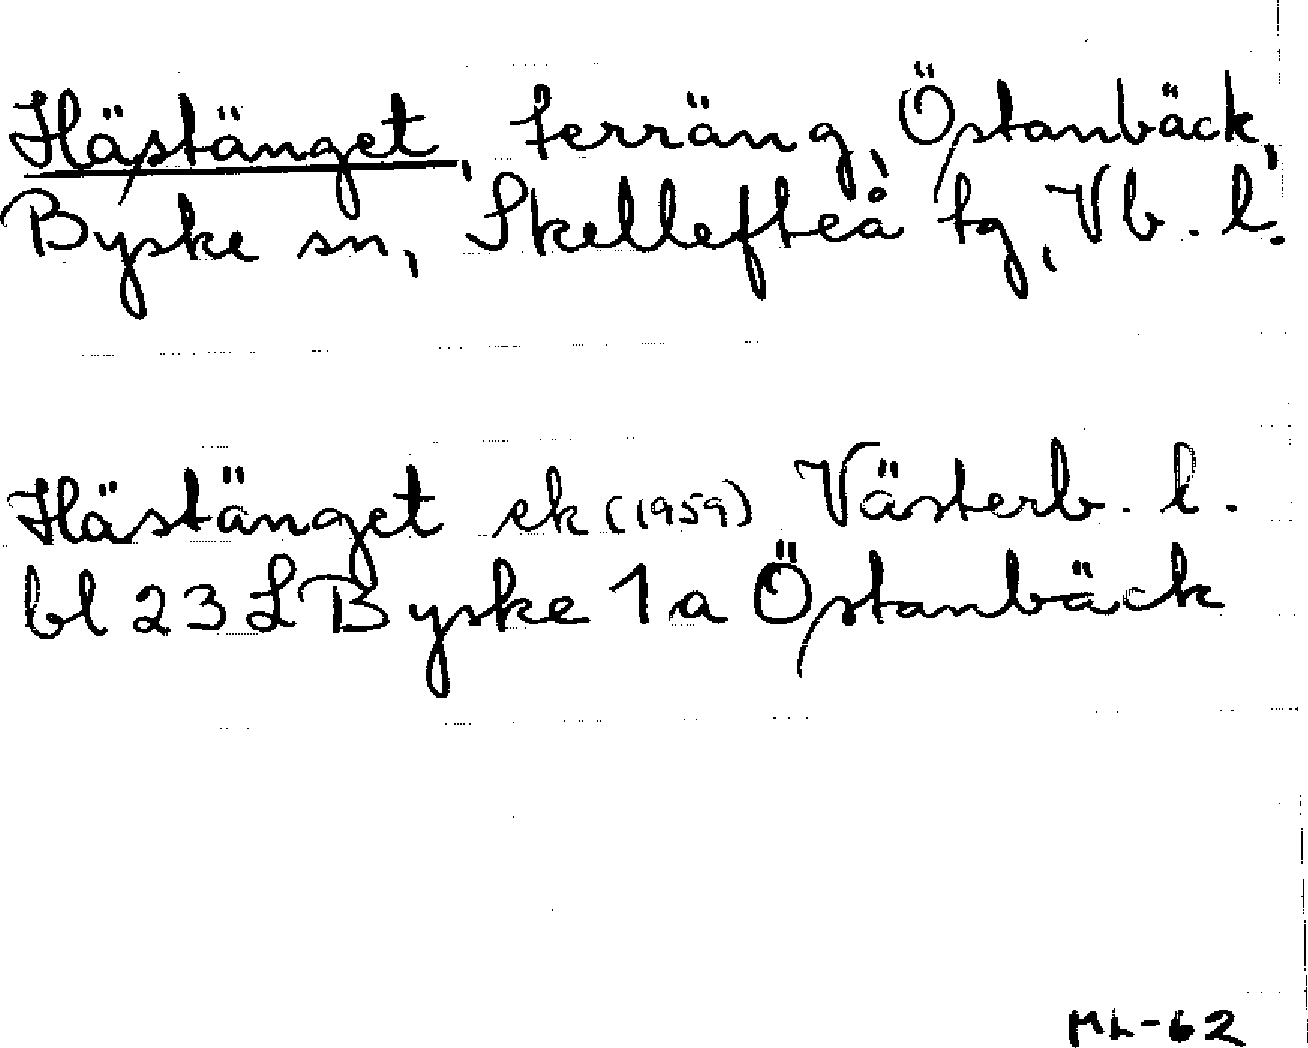 Hästänget, terräng, Östanbäck,
Byske sn, Skellefteå tg, Vb. l.
Hästänget ek (1959) Västerb. l.
bl 23 L Byske 1 a Östanbäck
ML-62